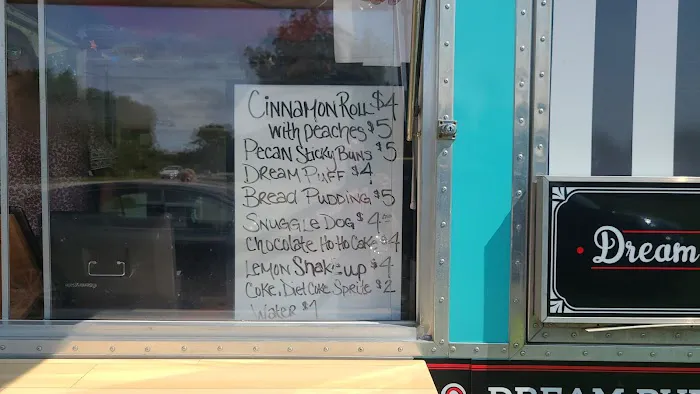 Cinnamon Roll $4
with peaches $5
Pecan Sticky Buns $5
Dream Puff $4
Bread Pudding $5
Snuggle Dog $4.00
Chocolate Ho-Ho Cake $4
Lemon Shake-up $4
Coke, Diet Coke Sprite $2
Water $1
Dream
DREAM PU